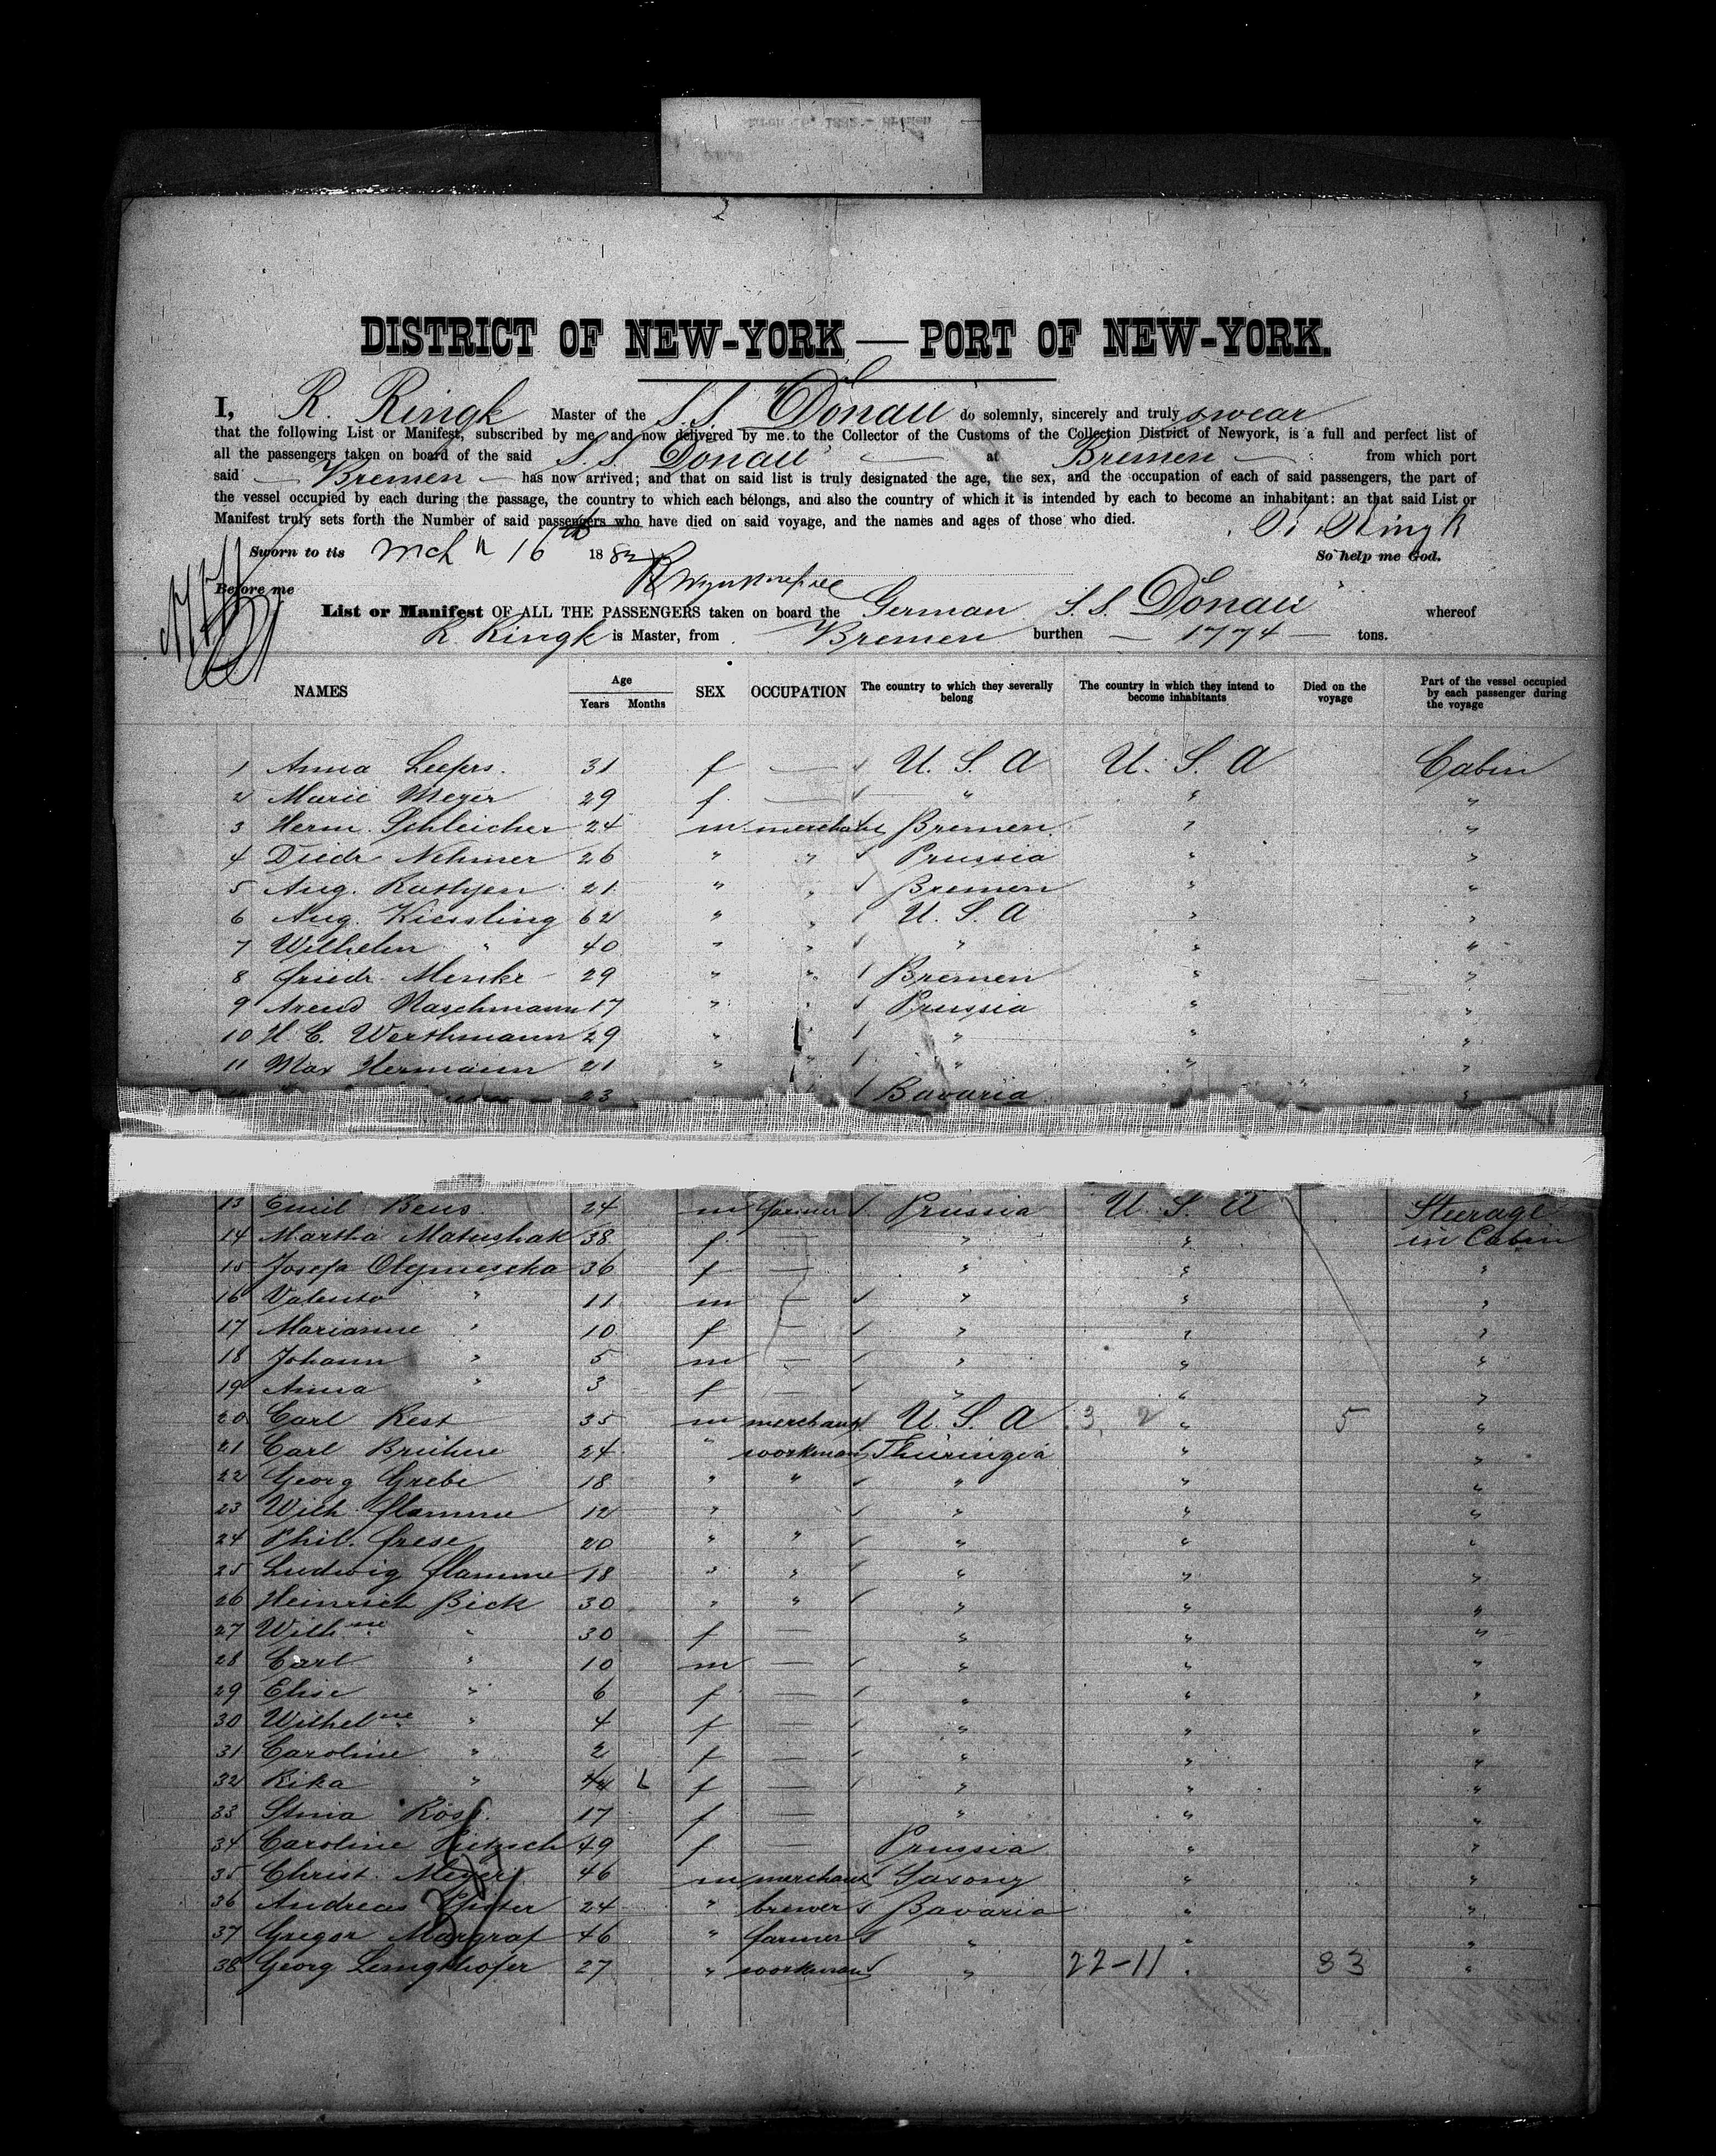 DISTRICT OF NEW-YORK — PORT OF NEW-YORK.
I, R. Ringk Master of the S.S. "Donau" do solemnly, sincerely and truly swear
that the following List or Manifest, subscribed by me, and now delivered by me to the Collector of the Customs of the Collection District of Newyork, is a full and perfect list of
all the passengers taken on board of the said S.S. Donau — at Bremen — from which port
said — Bremen — has now arrived; and that on said list is truly designated the age, the sex, and the occupation of each of said passengers, the part of
the vessel occupied by each during the passage, the country to which each belongs, and also the country of which it is intended by each to become an inhabitant: an that said List or
Manifest truly sets forth the Number of said passengers who have died on said voyage, and the names and ages of those who died.
Ringk
Sworn to tis Mch 16th 1882 So help me God.
Before me
List or Manifest OF ALL THE PASSENGERS taken on board the German S.S. Donau whereof
R. Ringk is Master, from Bremen burthen — 1774 — tons.
NAMES Age Years Months SEX OCCUPATION The country to which they severally belong The country in which they intend to become inhabitants Died on the voyage Part of the vessel occupied by each passenger during the voyage
1 Anna Leefers 31 f — U. S. A U. S. A Cabin
2 Marie Meyer 29 f — " " "
3 Herm. Schleicher 24 m merchant Bremen " "
4 Diedr Nehmer 26 " " Prussia " "
5 Aug. Rathjen 21 " " Bremen " "
6 Aug. Kiessling 62 " " U. S. A " "
7 Wilhelm " 40 " " " " "
8 Friedr. Menke 29 " " Bremen " "
9 Arend Naschmann 17 " " Prussia " "
10 H. C. Werthmann 29 " " " " "
11 Max Hermann 21 " " " " "
23 Bavaria " "
13 Emil Beus 24 m farmer Prussia U. S. A Steerage
14 Martha Matushak 38 f — " " in Cabin
15 Josefa 36 f — " " "
16 " 11 m — " " "
17 Marianne " 10 f — " " "
18 Johann " 5 m — " " "
19 Anna " 3 f — " " "
20 Carl Rest 35 m merchant U. S. A 3, 2 " 5 "
21 Carl Brühne 24 " workman Thüringia " "
22 Georg Grebe 18 " " " " "
23 Wilh. Flamme 12 " " " "
24 Phil. Frese 20 " " " " "
25 Ludwig Flamme 18 " " " " "
26 Heinrich Bick 30 " " " " "
27 Wilhne " 30 f — " " "
28 Carl " 10 m — " " "
29 Elise " 6 f — " " "
30 Wilhelne " 4 f — " " "
31 Caroline " 2 f — " " "
32 Rika " f — " " "
33 Stina 17 f — " " "
34 Caroline 49 f — Prussia " "
35 Christ. Meyer 46 m merchant Saxony " "
36 Andreas 24 " brewer Bavaria " "
37 Gregor Margraf 46 " farmer " " "
38 Georg 27 " workman " 22-11 " 83 "